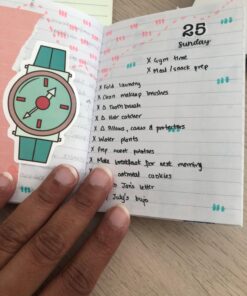 25
Sunday
X Gym time
X Meal/snack prep
X Fold laundry
X Clean makeup brushes
X Δ Toothbrush
X Δ Hair catcher
X Δ Pillows, cases & protectors
X Water plants
X Prep sweet potatoes
X Make breakfast for next morning
oatmeal cookies
Jan's letter
Judy's bujo